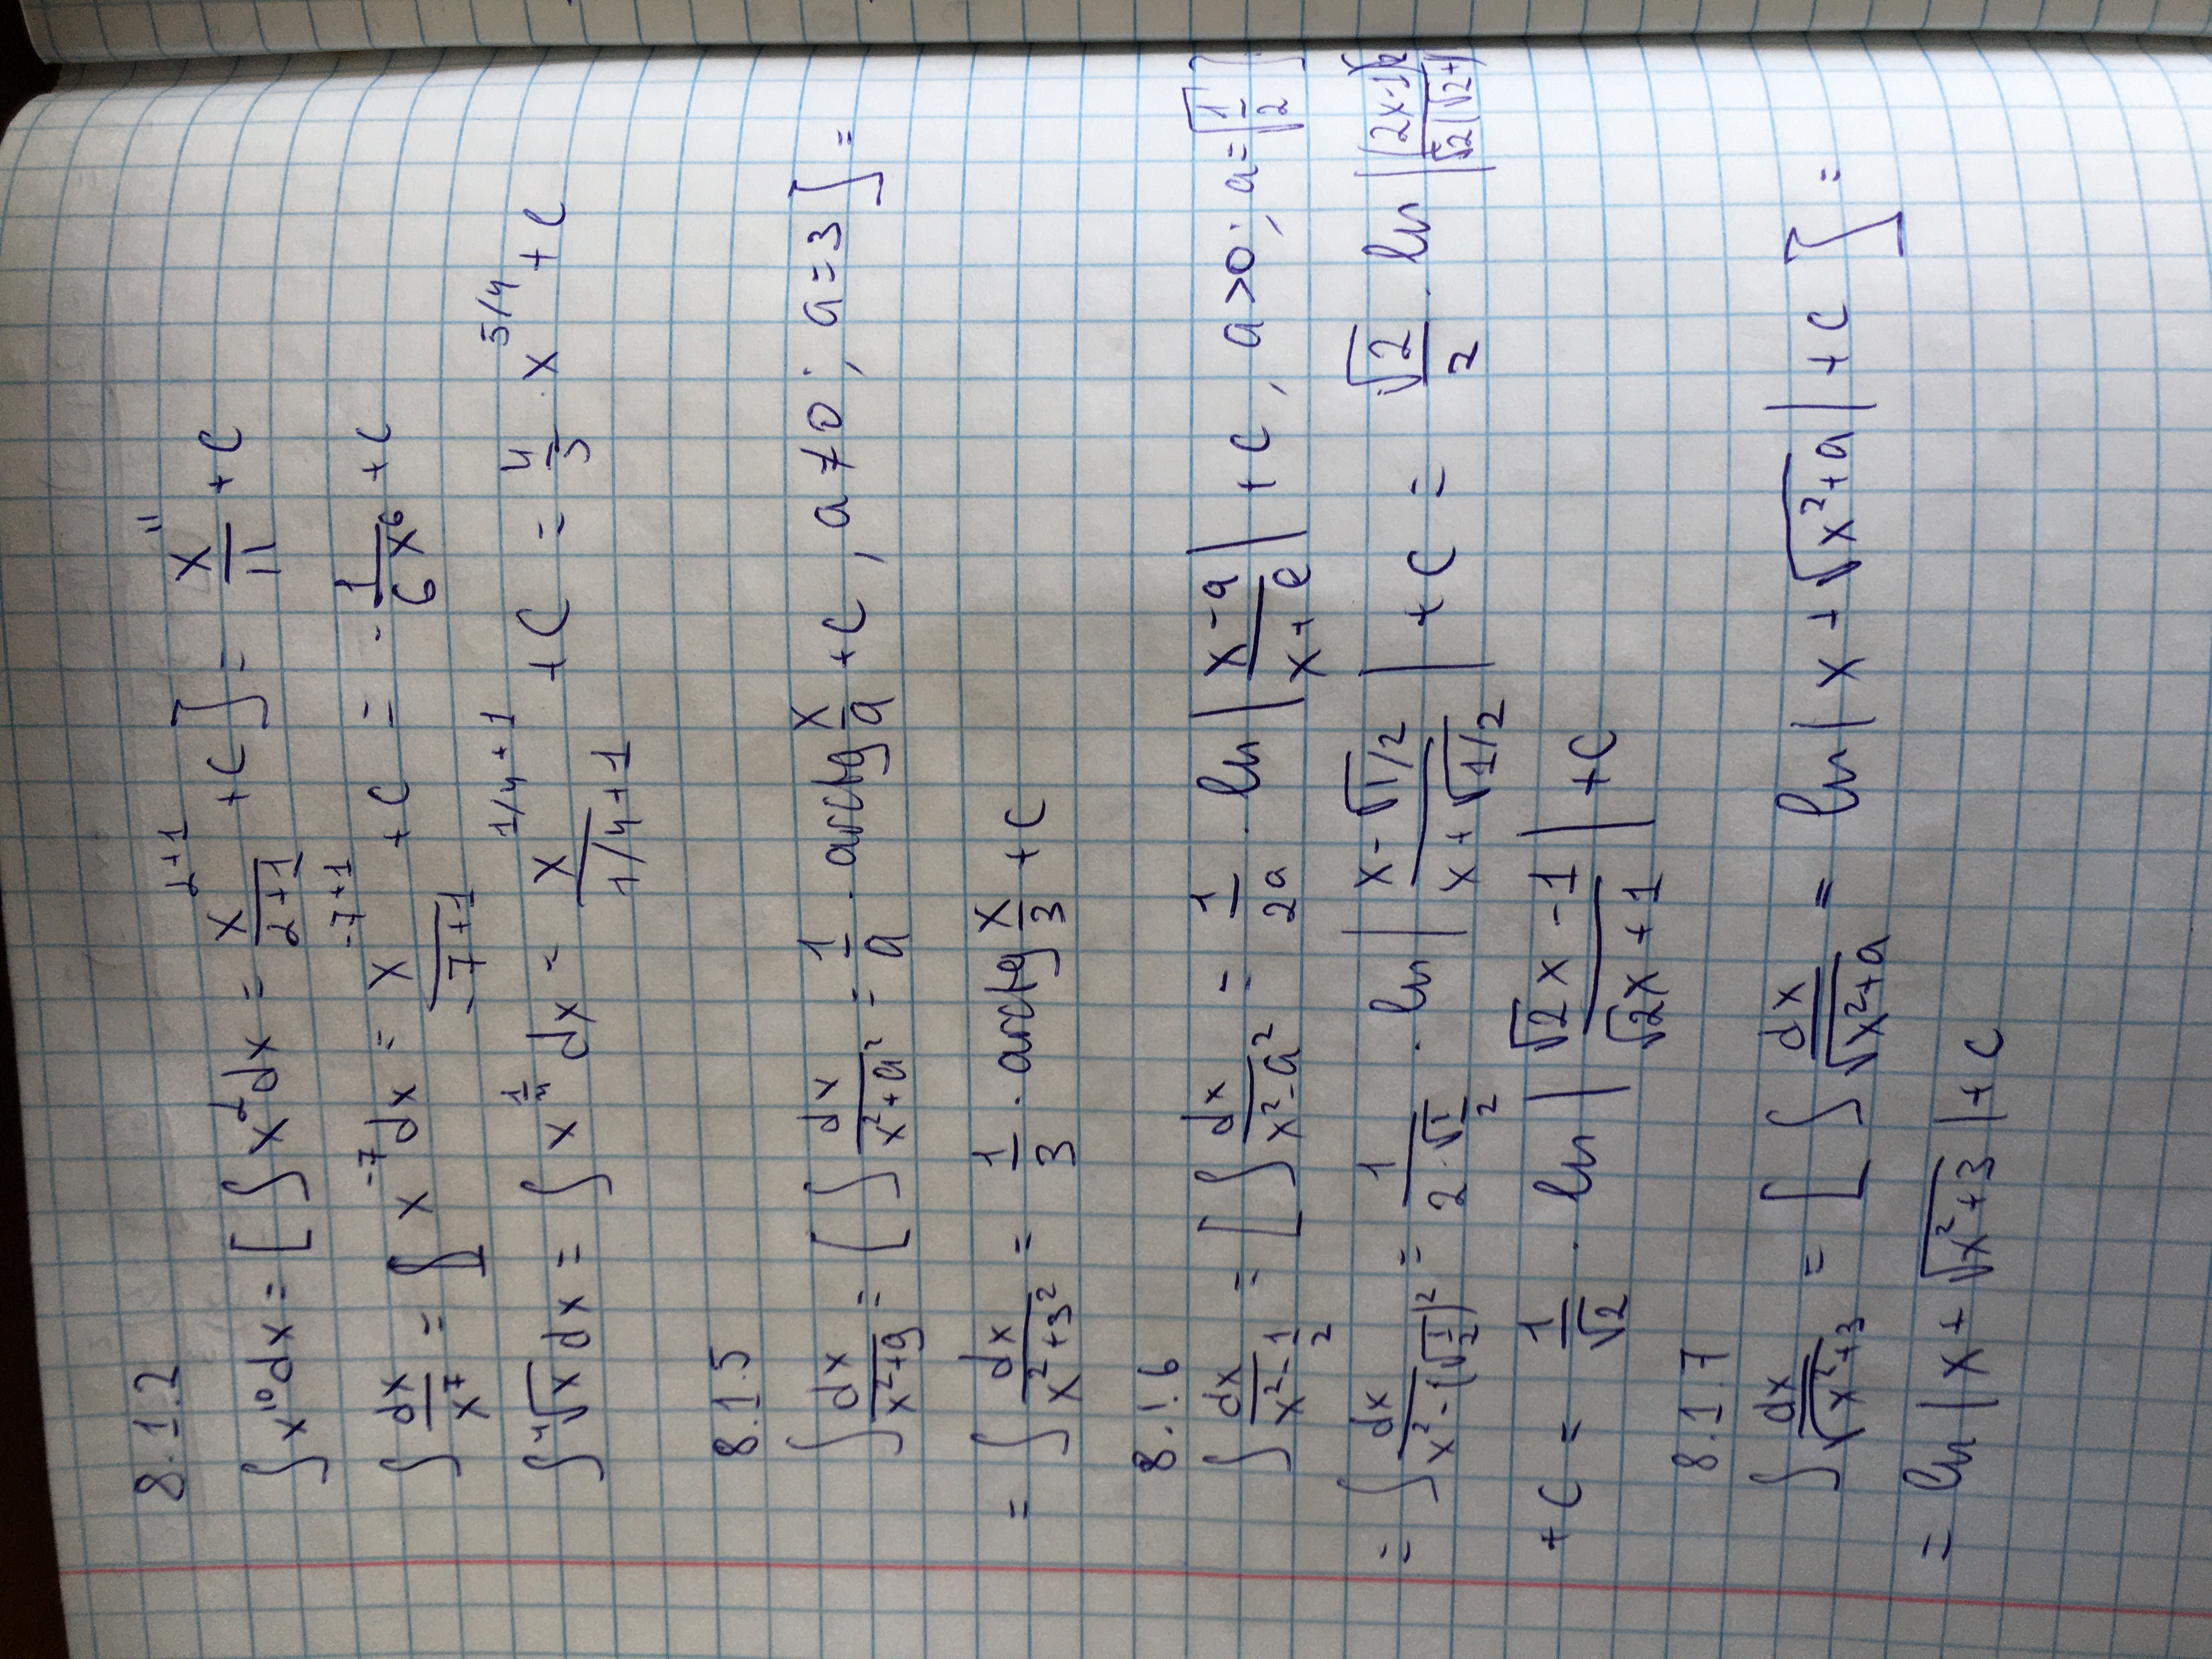 8.1.2
∫ x¹⁰ dx = [ ∫ x^α dx = x^(α+1)/(α+1) + C ] = x¹¹/11 + C
∫ dx/x⁷ = ∫ x⁻⁷ dx = x^(-7+1)/(-7+1) + C = - 1/(6x⁶) + C
∫ ⁴√x dx = ∫ x^(1/4) dx = x^(1/4+1)/(1/4+1) + C = 4/5 · x^(5/4) + C
8.1.5
∫ dx/(x²+9) = [ ∫ dx/(x²+a²) = 1/a · arctg x/a + C, a ≠ 0; a = 3 ] =
= ∫ dx/(x²+3²) = 1/3 · arctg x/3 + C
8.1.6
∫ dx/(x² - 1/2) = [ ∫ dx/(x²-a²) = 1/(2a) · ln |(x-a)/(x+a)| + C, a > 0; a = √(1/2) ]
= ∫ dx/(x² - (√(1/2))²) = 1/(2·√(1/2)) · ln |(x-√(1/2))/(x+√(1/2))| + C = √2/2 · ln
+ C = 1/√2 · ln |(√2x - 1)/(√2x + 1)| + C
8.1.7
∫ dx/√(x²+3) = [ ∫ dx/√(x²+a) = ln |x + √(x²+a)| + C ] =
= ln |x + √(x²+3)| + C